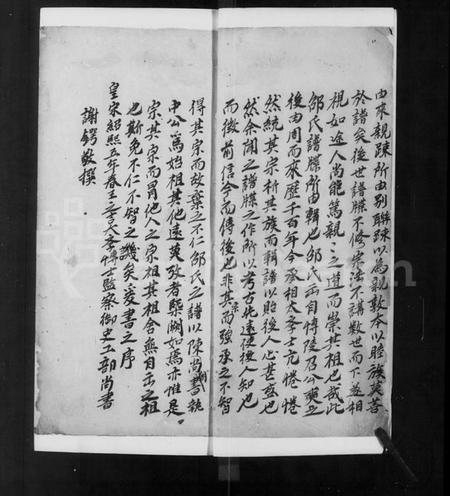 由來親疎所由别聯疎以為親敦本以睦族莫善
於譜矣後世譜牒不修宗法不講数世而下遂相
視如途人尚能篤親〻之道而崇其祖也哉此
邵氏譜牒所由輯也邵氏出自博陵乃公奭之
後由周而來歷千百年今承相太李士亢惓惓
然統其宗析其族而輯譜以貽後人心甚盛也
然余聞之譜牒之作所以考古也遠使後人知也
而徵前信今而傳後也非其宗而強承之不智
得其宗而故棄之不仁邵氏之譜以陳尚書執
中公為始祖其他遠莫攷者槩闕如焉亦惟是
宗其宗而胃他人之宗祖其祖舍無自出之祖
也斯免不仁不智之譏矣爰書之序
皇宋紹熙五年春王正月太李博士監察御史工部尚書
謝鍔敬撰